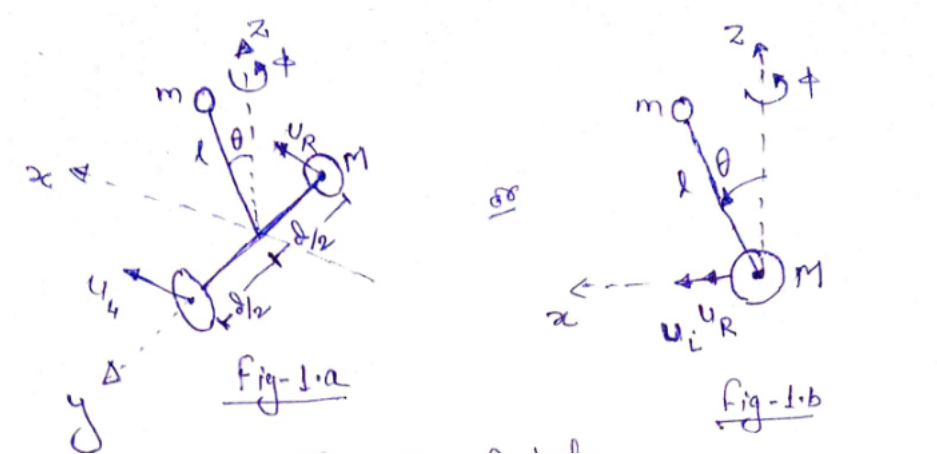 z
ϕ
m
θ
l
u_R
M
x
d/2
d/2
u_L
y
Fig-1.a
or
z
ϕ
m
θ
l
M
x
u_L u_R
Fig-1.b